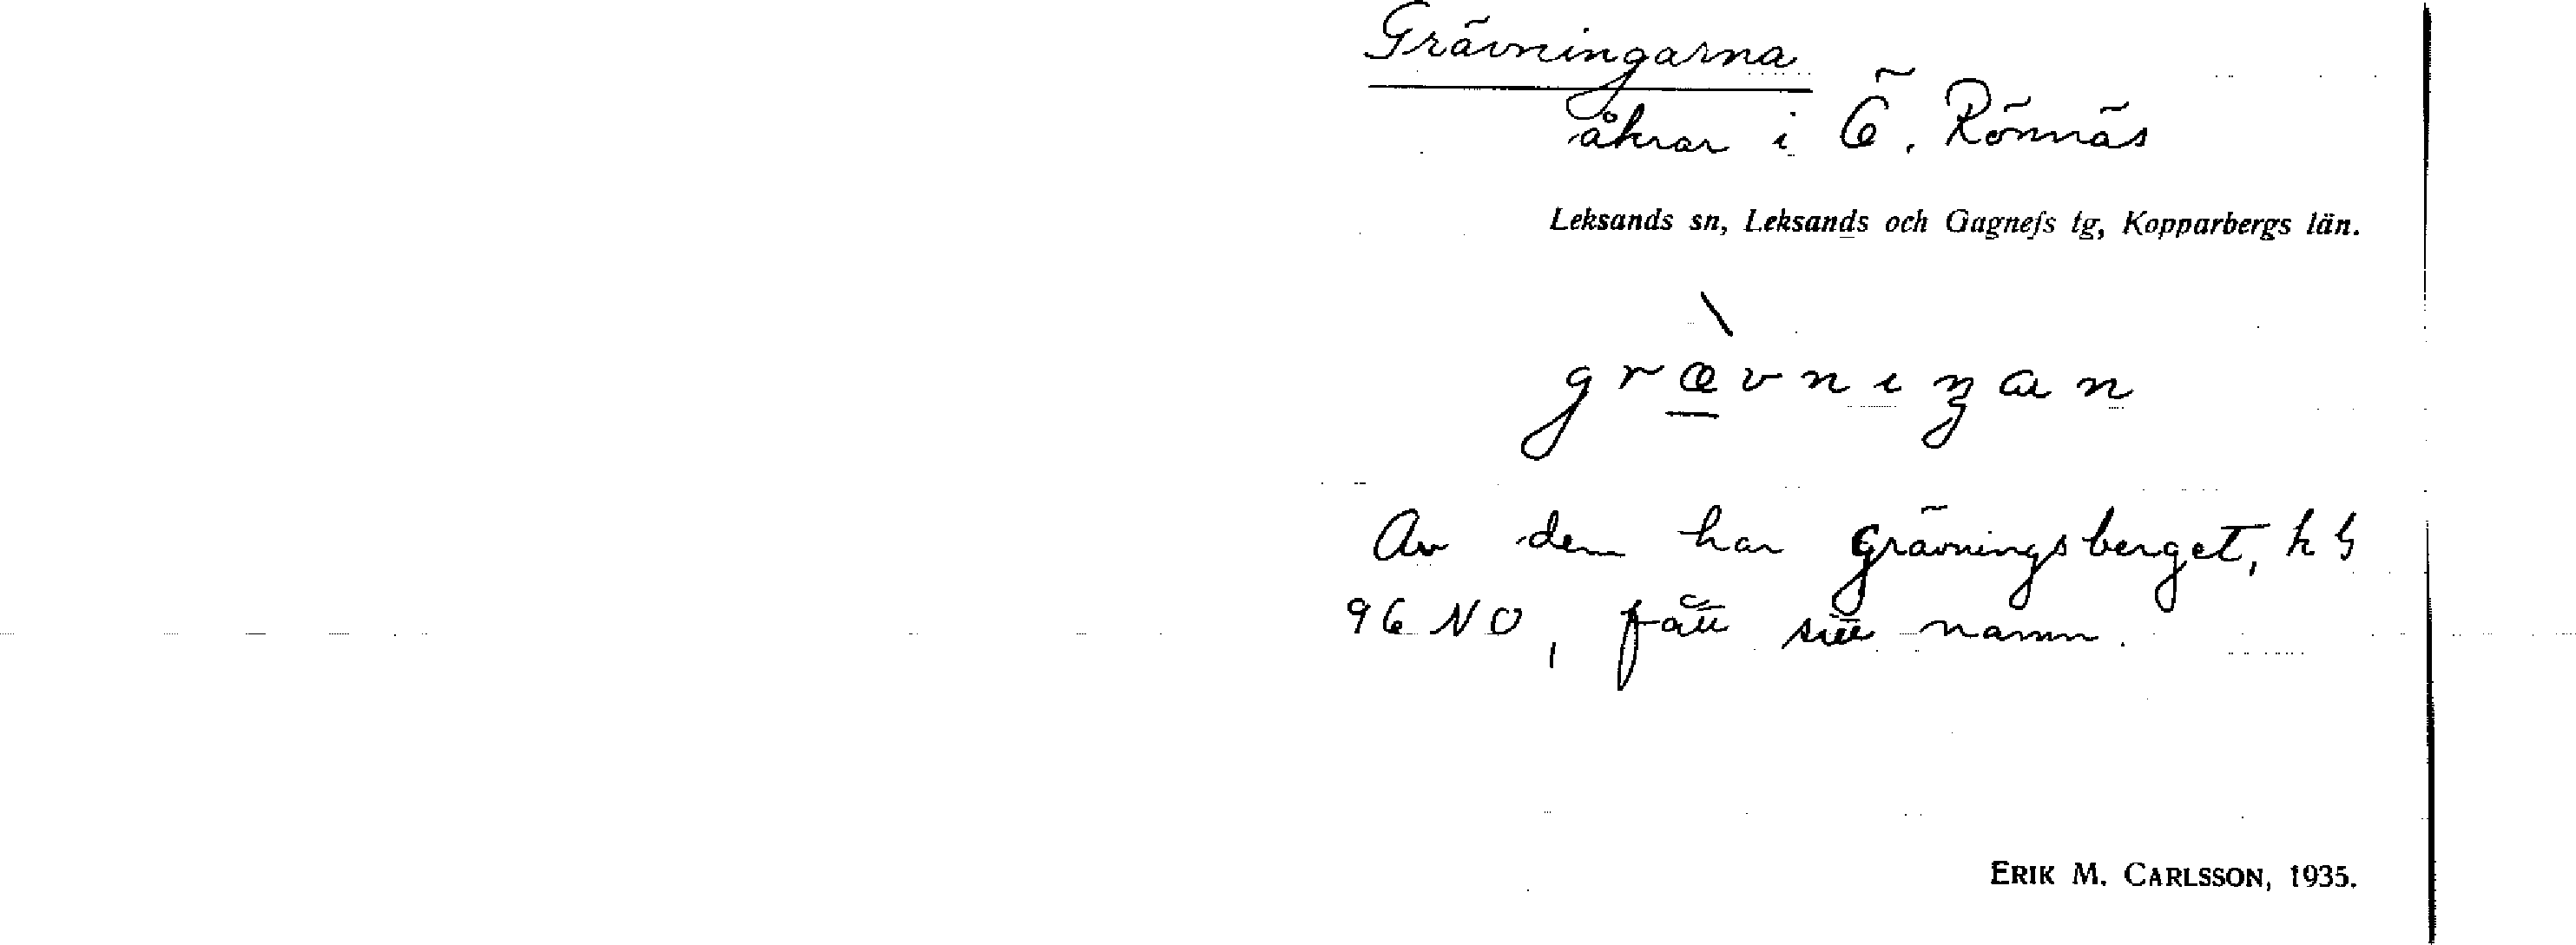 Grävningarna
åkrar i Ö. Rönnäs
Leksands sn, Leksands och Gagnefs tg, Kopparbergs län.
græ̀vniŋan
Av dem har Grävningsberget, kb
96 NO, fått sitt namn.
ERIK M. CARLSSON, 1935.